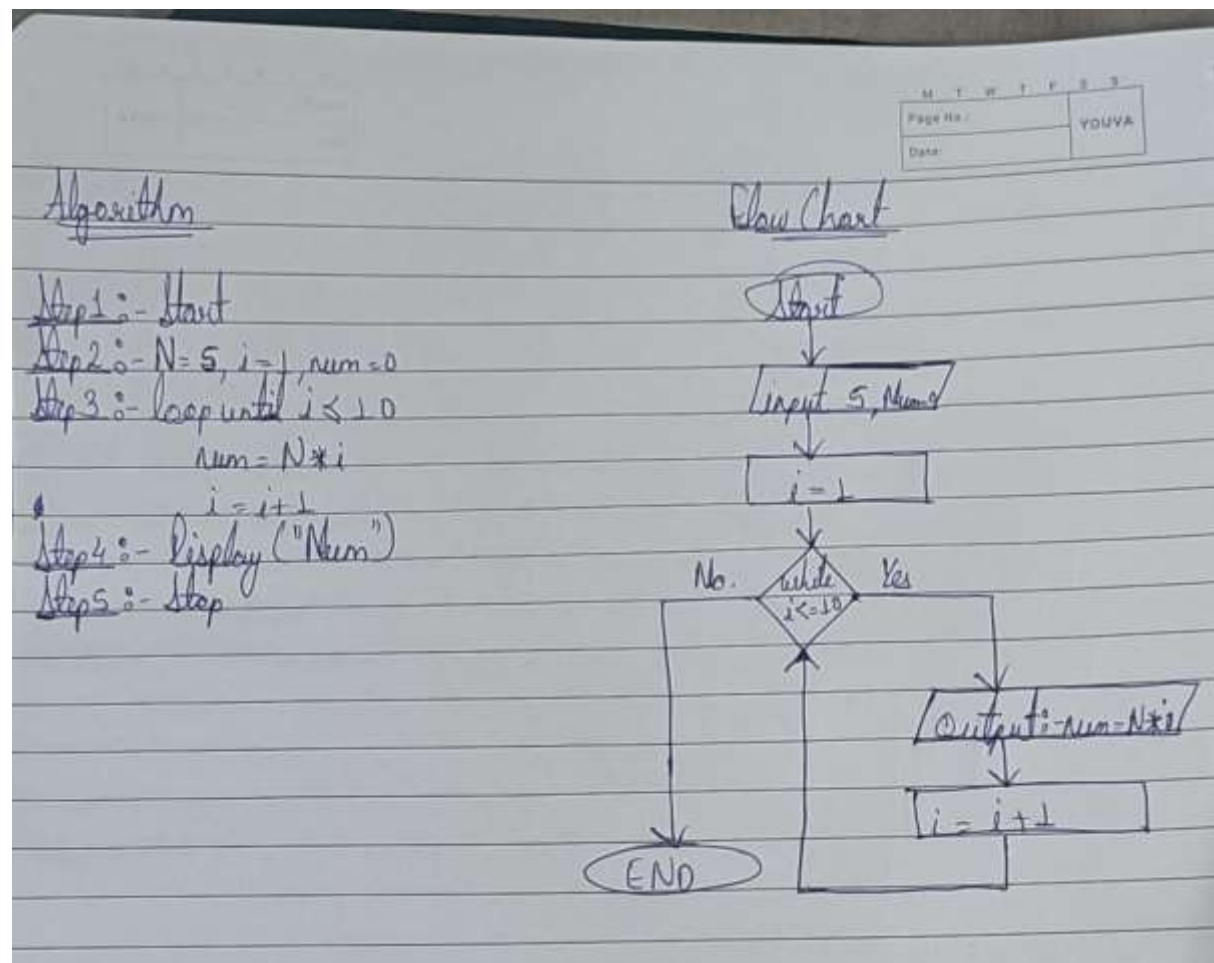 M T W T F S S
Page No.:
YOUVA
Date:
Algorithm
Step1:- Start
Step2:- N=5, i=1, num=0
Step3:- loop until i≤10
num = N*i
i = i+1
Step4:- Display ("Num")
Step5:- Stop
Flow Chart
Start
input 5, Num=0
i=1
while
i<=10
No.
Yes
Output:- num=N*i
i = i+1
END